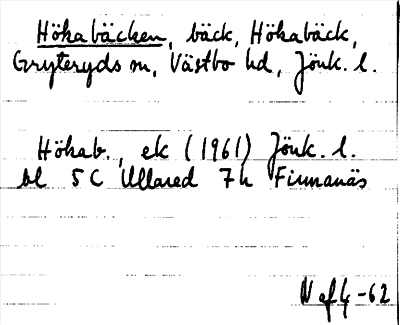 Hökabäcken, bäck, Hökabäck,
Gryteryds sn, Västbo hd, Jönk. l.
Hökab., ek (1961) Jönk. l.
bl 5 C Ullared 7 h Finnanäs
-62